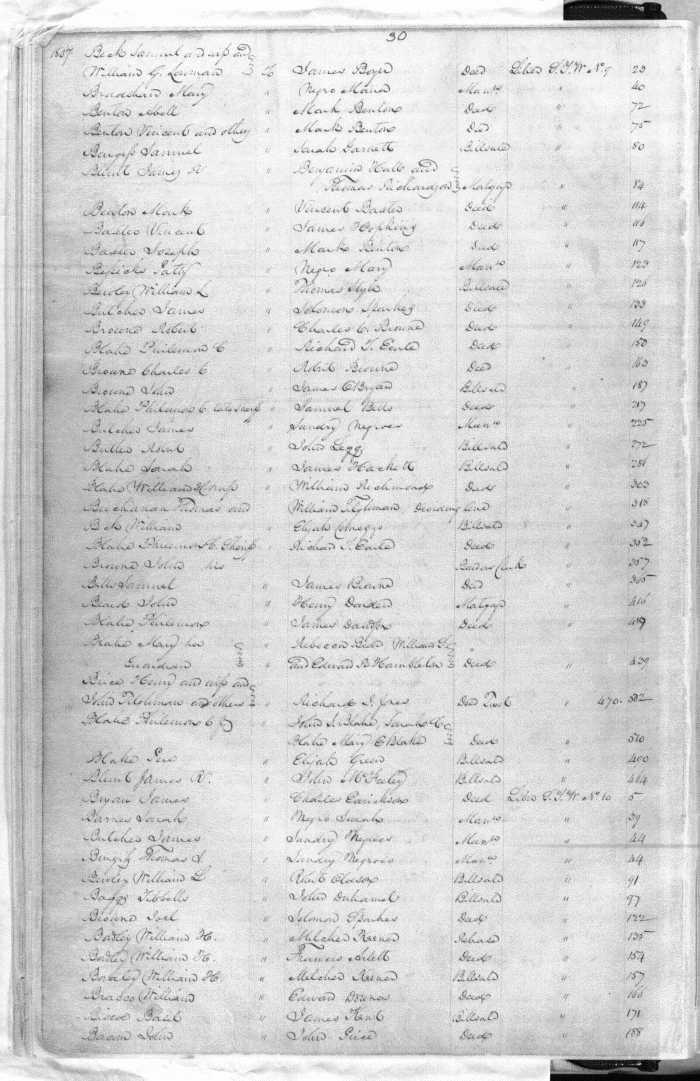 30
1837 Beck Samuel and wife and
William G. Lowman to James Boyer Deed Liber No 9 23
Bradshaw Mary " Negro Maria Manso 40
Benton Abell " Mark Benton Deed " 72
Benton Vincent and others " Mark Benton Deed " 75
Samuel " Sarah Garnett Billsale " 80
Blunt James R " Benjamin Hall and
Thomas Richardson Matgage " 84
Benton Mark " Vincent Baster Deed " 114
Baster Vincent " James Hopkins Deed " 116
Baster Joseph " Mark Benton Deed " 117
Patty " Negro Mary Manso " 123
William L " Thomas Billsale " 126
Butcher James " Solomon Sparkes Deed " 133
Browne Robert " Charles C. Browne Deed " 149
Blake Philemon C " Richard T. Earle Deed " 150
Browne Charles C " Robert Browne Deed " 163
Browne " James Bryan Billsale " 187
Blake Philemon C. late Sheriff " Samuel Betts Deed " 217
Butcher James " Sundry Negroes Manso " 225
Butler Robert " John Legg Billsale " 272
Blake Sarah " James Hackett Billsale " 286
Blake William H. wife " William Richmond Deed " 303
Buchanan Thomas and William Tilghman dividing line " 318
Beck William " Elijah Billsale " 347
Blake Philemon C. Sheriff " Richard T. Earle Deed " 352
Browne John his " 357
Betts Samuel " James Browne Deed " 365
Beard John " Henry Matgage " 416
Blake Philemon " James Dawson Deed " 419
Blake Mary her Rebecca William
Guardian " and Edward R Hambleton Deed " 439
Brice Henry and wife and
John Tilghman and others " Richard I. Jones Deed Trust " 470. 502
Blake Philemon C John S. Blake, Sarah C
Blake Mary E Blake Deed " 510
Blake " Elijah Green Billsale " 490
Blunt James R. " John McFeeley Billsale " 464
Bryan James " Charles Deed Liber No 10 5
Barnes Sarah " Negro Sarah Manso " 39
Butcher James " Sundry Negroes Manso " 44
Thomas S. " Sundry Negroes Manso " 44
William L " Robt Billsale " 91
Baggs Tibbells " John Duhamel Billsale " 97
Browne Joel " Solomon Sparkes Deed " 122
Bordley William H. " Melcher Release " 135
Bordley William H. " Francis Arlett Deed " 154
Bordley William H. " Melcher Billsale " 157
William " Edward Deed " 166
Biscoe Basil " James Kent Billsale " 171
Bacon John " John Price Deed " 188